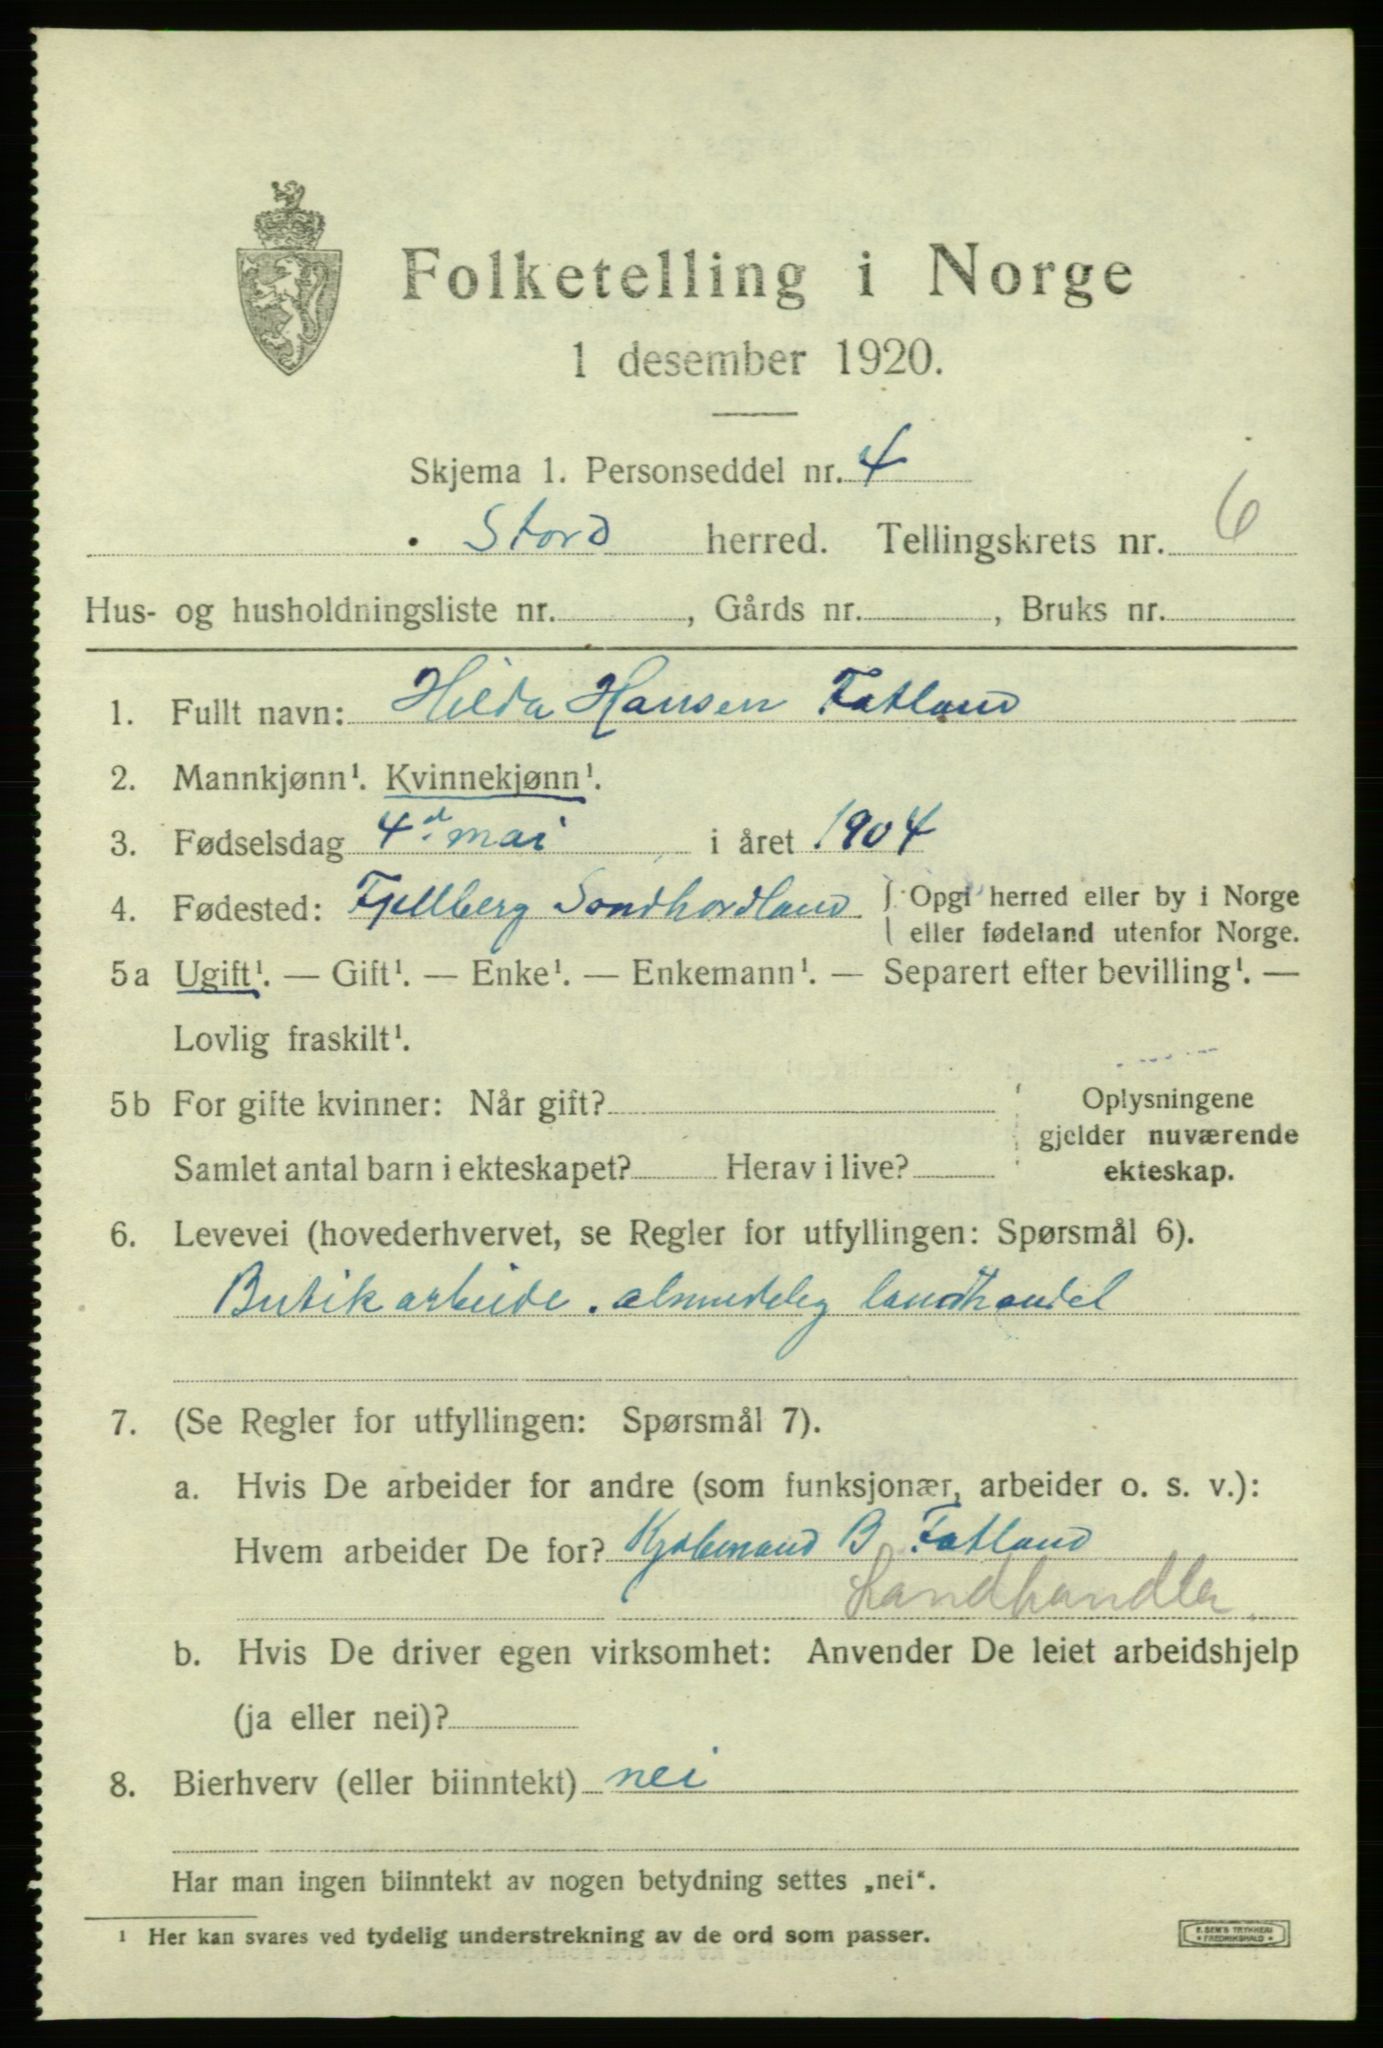 Folketelling i Norge
1 desember 1920.
Skjema 1. Personseddel nr. 4
Stord herred. Tellingskrets nr. 6
Hus- og husholdningsliste nr. , Gårds nr. , Bruks nr.
1. Fullt navn: Hilda Hansen Fatland
2. Mannkjønn¹. Kvinnekjønn¹.
3. Fødselsdag 4d. mai i året 1904
4. Fødested: Fjellberg Sondhordland { Opgi herred eller by i Norge
eller fødeland utenfor Norge.
5a Ugift¹. — Gift¹. — Enke¹. — Enkemann¹. — Separert efter bevilling¹. —
Lovlig fraskilt¹.
5b For gifte kvinner: Når gift? Oplysningene
gjelder nuværende
Samlet antal barn i ekteskapet? Herav i live? ekteskap.
6. Levevei (hovederhvervet, se Regler for utfyllingen: Spørsmål 6).
Butik arbeide. almudelig landhandel
7. (Se Regler for utfyllingen: Spørsmål 7).
a. Hvis De arbeider for andre (som funksjonær, arbeider o. s. v.):
Hvem arbeider De for? Kjøbmand B Fatland
Landhandler
b. Hvis De driver egen virksomhet: Anvender De leiet arbeidshjelp
(ja eller nei)?
8. Bierhverv (eller biinntekt) nei
Har man ingen biinntekt av nogen betydning settes „nei“.
¹ Her kan svares ved tydelig understrekning av de ord som passer.
E. SEM'S TRYKKERI
FREDRIKSHALD